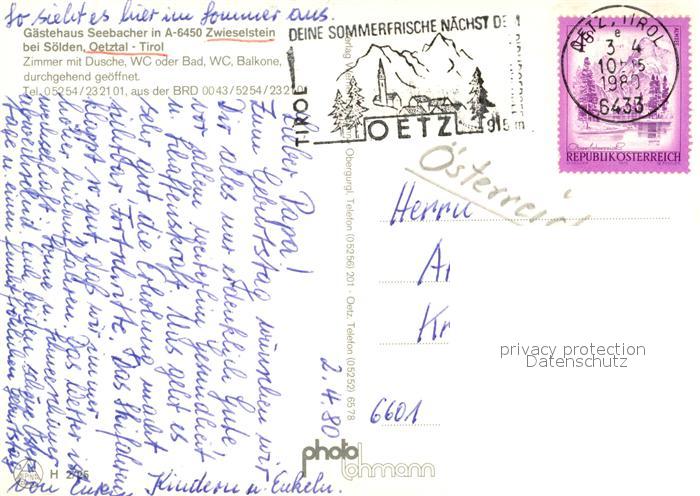 So sieht es hier im Sommer aus.
Gästehaus Seebacher in A-6450 Zwieselstein
bei Sölden, Oetztal - Tirol
Zimmer mit Dusche, WC oder Bad, WC, Balkone,
durchgehend geöffnet.
Tel. 05254/232101, aus der BRD 0043/5254/232
DEINE SOMMERFRISCHE NÄCHST DE
TIROL
OETZ
915 m
OETZ, TIROL
3 4
1980
6433
REPUBLIK ÖSTERREICH
Lieber Papa!
Zum Geburtstag wünschen wir
Dir alles nur erdenklich Gute
vor allem weiterhin Gesundheit
u. Schaffenskraft. Uns geht es
sehr gut, die Erholung macht
sichtbar Fortschritte. Das Skifahren
klappt so gut, daß wir immer
höher hinauffahren. Das Wetter ist
wechselhaft, Sonne u. Schneeschauer
Tage u. einen
von Euren Kindern u. Enkeln.
2.4.80
Obergurgl, Telefon (05256) 201 - Oetz, Telefon (05252) 6578
Österreich
Herrn
A
Kr
6601
privacy protection
Datenschutz
photo
Lohmann